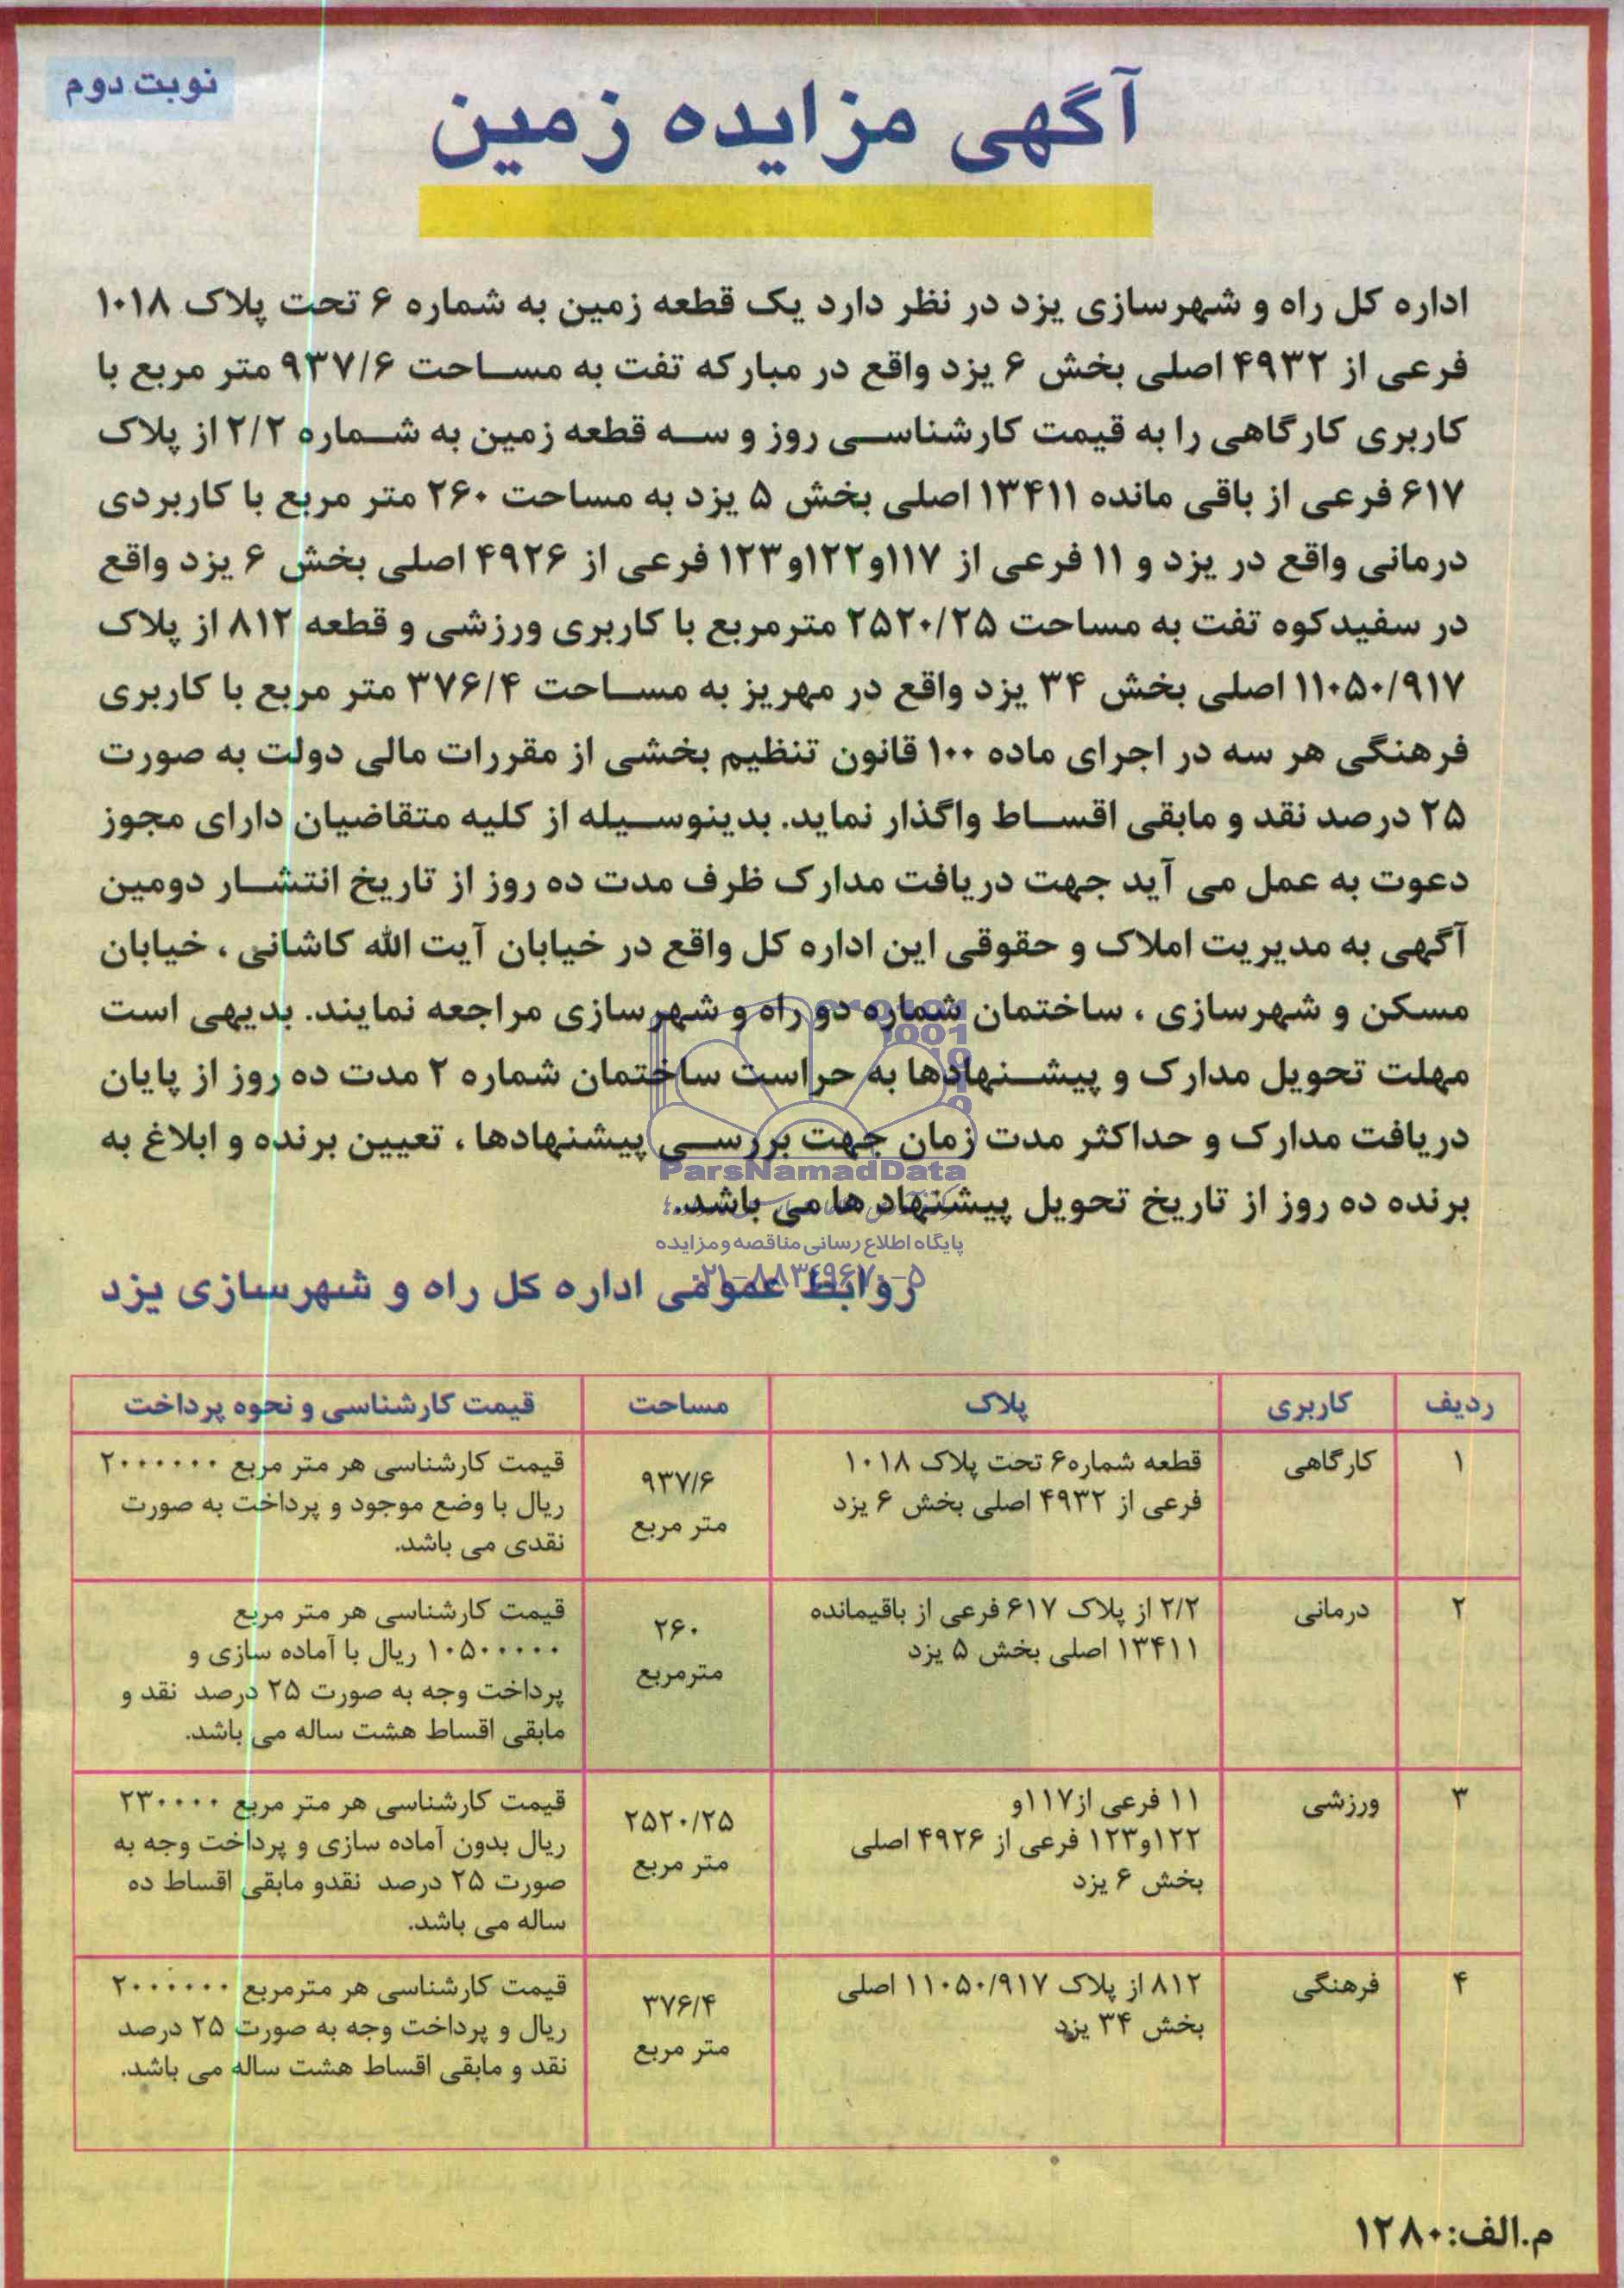 نوبت دوم
آگهی مزایده زمین
اداره کل راه و شهرسازی یزد در نظر دارد یک قطعه زمین به شماره ۶ تحت پلاک ۱۰۱۸
فرعی از ۴۹۳۲ اصلی بخش ۶ یزد واقع در مبارکه تفت به مساحت ۹۳۷/۶ متر مربع با
کاربری کارگاهی را به قیمت کارشناسی روز و سه قطعه زمین به شماره ۲/۲ از پلاک
۶۱۷ فرعی از باقی مانده ۱۳۴۱۱ اصلی بخش ۵ یزد به مساحت ۲۶۰ متر مربع با کاربردی
درمانی واقع در یزد و ۱۱ فرعی از ۱۱۷و۱۲۲و۱۲۳ فرعی از ۴۹۲۶ اصلی بخش ۶ یزد واقع
در سفیدکوه تفت به مساحت ۲۵۲۰/۲۵ مترمربع با کاربری ورزشی و قطعه ۸۱۲ از پلاک
۱۱۰۵۰/۹۱۷ اصلی بخش ۳۴ یزد واقع در مهریز به مساحت ۳۷۶/۴ متر مربع با کاربری
فرهنگی هر سه در اجرای ماده ۱۰۰ قانون تنظیم بخشی از مقررات مالی دولت به صورت
۲۵ درصد نقد و مابقی اقساط واگذار نماید. بدینوسیله از کلیه متقاضیان دارای مجوز
دعوت به عمل می آید جهت دریافت مدارک ظرف مدت ده روز از تاریخ انتشار دومین
آگهی به مدیریت املاک و حقوقی این اداره کل واقع در خیابان آیت الله کاشانی ، خیابان
مسکن و شهرسازی ، ساختمان شماره دو راه و شهرسازی مراجعه نمایند. بدیهی است
مهلت تحویل مدارک و پیشنهادها به حراست ساختمان شماره ۲ مدت ده روز از پایان
دریافت مدارک و حداکثر مدت زمان جهت بررسی پیشنهادها ، تعیین برنده و ابلاغ به
برنده ده روز از تاریخ تحویل پیشنهاد ها می باشد.
ParsNamadData
پایگاه اطلاع رسانی مناقصه و مزایده
۰۲۱-۸۸۳۴۹۶۷۰-۵
روابط عمومی اداره کل راه و شهرسازی یزد
ردیف کاربری پلاک مساحت قیمت کارشناسی و نحوه پرداخت
۱ کارگاهی
قطعه شماره۶ تحت پلاک ۱۰۱۸
فرعی از ۴۹۳۲ اصلی بخش ۶ یزد
۹۳۷/۶
متر مربع
قیمت کارشناسی هر متر مربع ۲۰۰۰۰۰۰
ریال با وضع موجود و پرداخت به صورت
نقدی می باشد.
۲ درمانی
۲/۲ از پلاک ۶۱۷ فرعی از باقیمانده
۱۳۴۱۱ اصلی بخش ۵ یزد
۲۶۰
مترمربع
قیمت کارشناسی هر متر مربع
۱۰۵۰۰۰۰۰ ریال با آماده سازی و
پرداخت وجه به صورت ۲۵ درصد نقد و
مابقی اقساط هشت ساله می باشد.
۳ ورزشی
۱۱ فرعی از۱۱۷و
۱۲۲و۱۲۳ فرعی از ۴۹۲۶ اصلی
بخش ۶ یزد
۲۵۲۰/۲۵
متر مربع
قیمت کارشناسی هر متر مربع ۲۳۰۰۰۰
ریال بدون آماده سازی و پرداخت وجه به
صورت ۲۵ درصد نقدو مابقی اقساط ده
ساله می باشد.
۴ فرهنگی
۸۱۲ از پلاک ۱۱۰۵۰/۹۱۷ اصلی
بخش ۳۴ یزد
۳۷۶/۴
متر مربع
قیمت کارشناسی هر مترمربع ۲۰۰۰۰۰۰
ریال و پرداخت وجه به صورت ۲۵ درصد
نقد و مابقی اقساط هشت ساله می باشد.
م.الف:۱۲۸۰